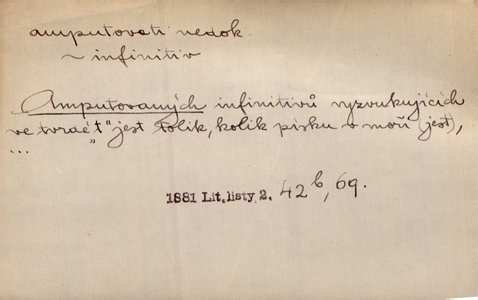 amputovati nedok.
~ infinitiv
Amputovaných infinitivů vyzvukujících
ve tvrdé „t“ jest tolik, kolik písku v moři (jest),
...
1881 Lit. listy 2. 42b, 69.